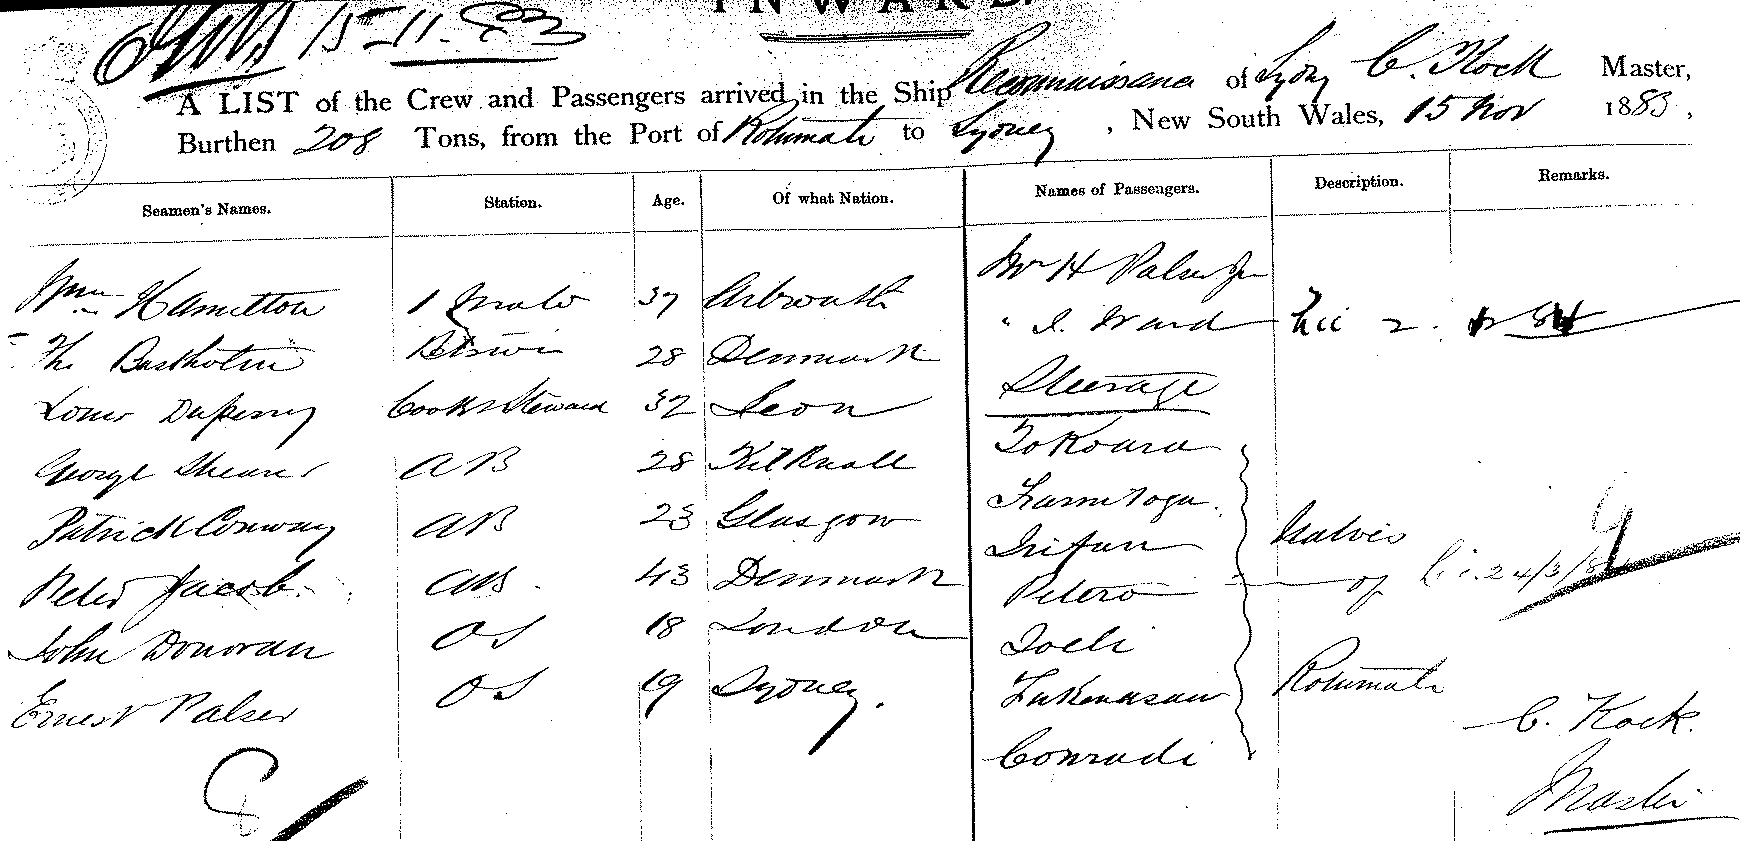 INWARD.
15-11-83
A LIST of the Crew and Passengers arrived in the Ship Reconnaissance of Sydny C. Kock Master,
Burthen 208 Tons, from the Port of Rotumah to Sydney, New South Wales, 15 Nov 1883,
Seamen's Names. Station. Age. Of what Nation. Names of Passengers. Description. Remarks.
Mr H Palmer Jn
Wm Hamilton 1 Mate 37 Arbroath
" I. Ward
Th. Bastholm Boswin 28 Denmark
Steerage
Louis Duperry Cook & Steward 32 Leon
George Shearer AB 28
Patrick Conway AB 23 Glasgow
Natives
Peter Jacob AB 43 Denmark
Petero of 24/3/84
John Donovan OS 18 London
Joeli
Ernest Palser OS 19 Sydney.
Rotumah
C. Kock.
Conradi
Master